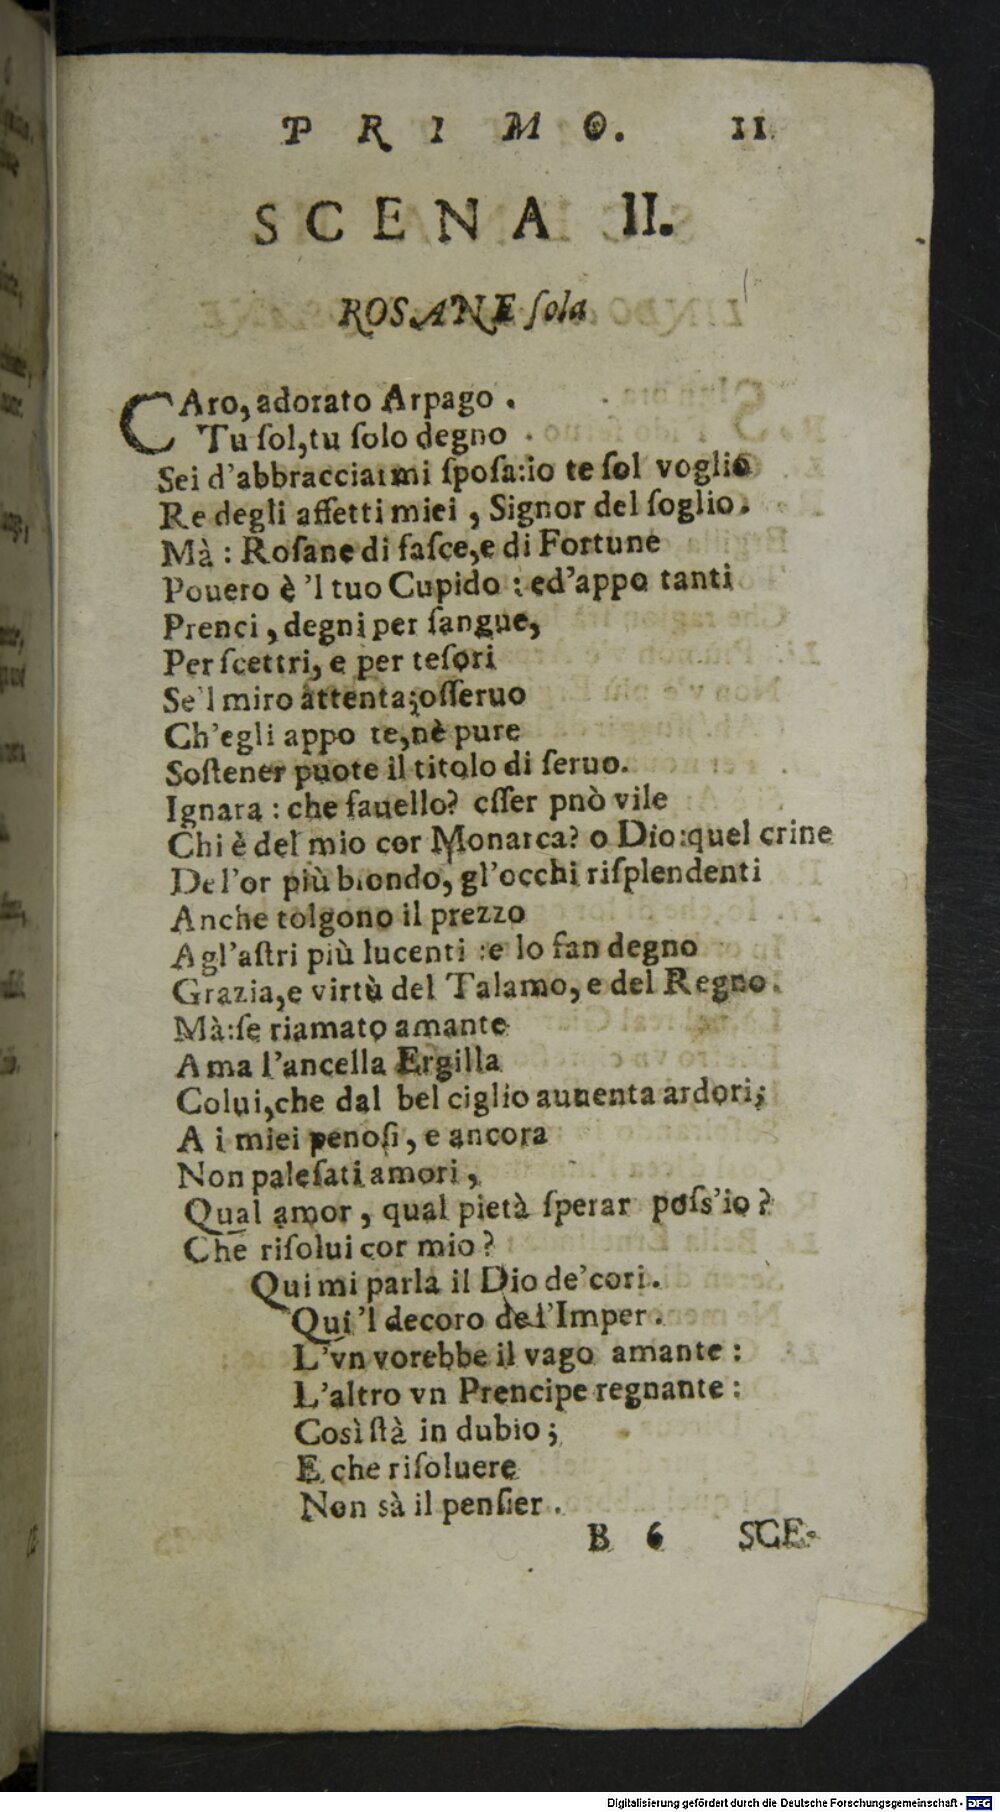 PRIMO. 11
SCENA II.
ROSANE ſola
CAro, adorato Arpago.
Tu ſol, tu ſolo degno
Sei d'abbracciarmi ſpoſa: io te ſol voglio
Re degli affetti miei, Signor del ſoglio.
Mà: Roſane di faſce, e di Fortune
Pouero è 'l tuo Cupido: ed'appo tanti
Prenci, degni per ſangue,
Per ſcettri, e per teſori
Se'l miro attenta; oſſeruo
Ch'egli appo te, nè pure
Soſtener puote il titolo di ſeruo.
Ignara: che fauello? eſſer pnò vile
Chi è del mio cor Monarca? o Dio: quel crine
Del'or più biondo, gl'occhi riſplendenti
Anche tolgono il prezzo
Agl'aſtri più lucenti: e lo fan degno
Grazia, e virtù del Talamo, e del Regno.
Mà: ſe riamato amante
Ama l'ancella Ergilla
Colui, che dal bel ciglio auuenta ardori;
A i miei penoſi, e ancora
Non paleſati amori,
Qual amor, qual pietà ſperar poſs'io?
Che riſolui cor mio?
Qui mi parla il Dio de'cori.
Qui 'l decoro del'Imper.
L'vn vorebbe il vago amante:
L'altro vn Prencipe regnante:
Così ſtà in dubio;
E che riſoluere
Non sà il penſier.
B 6 SCE-
Digitalisierung gefördert durch die Deutsche Forschungsgemeinschaft - DFG